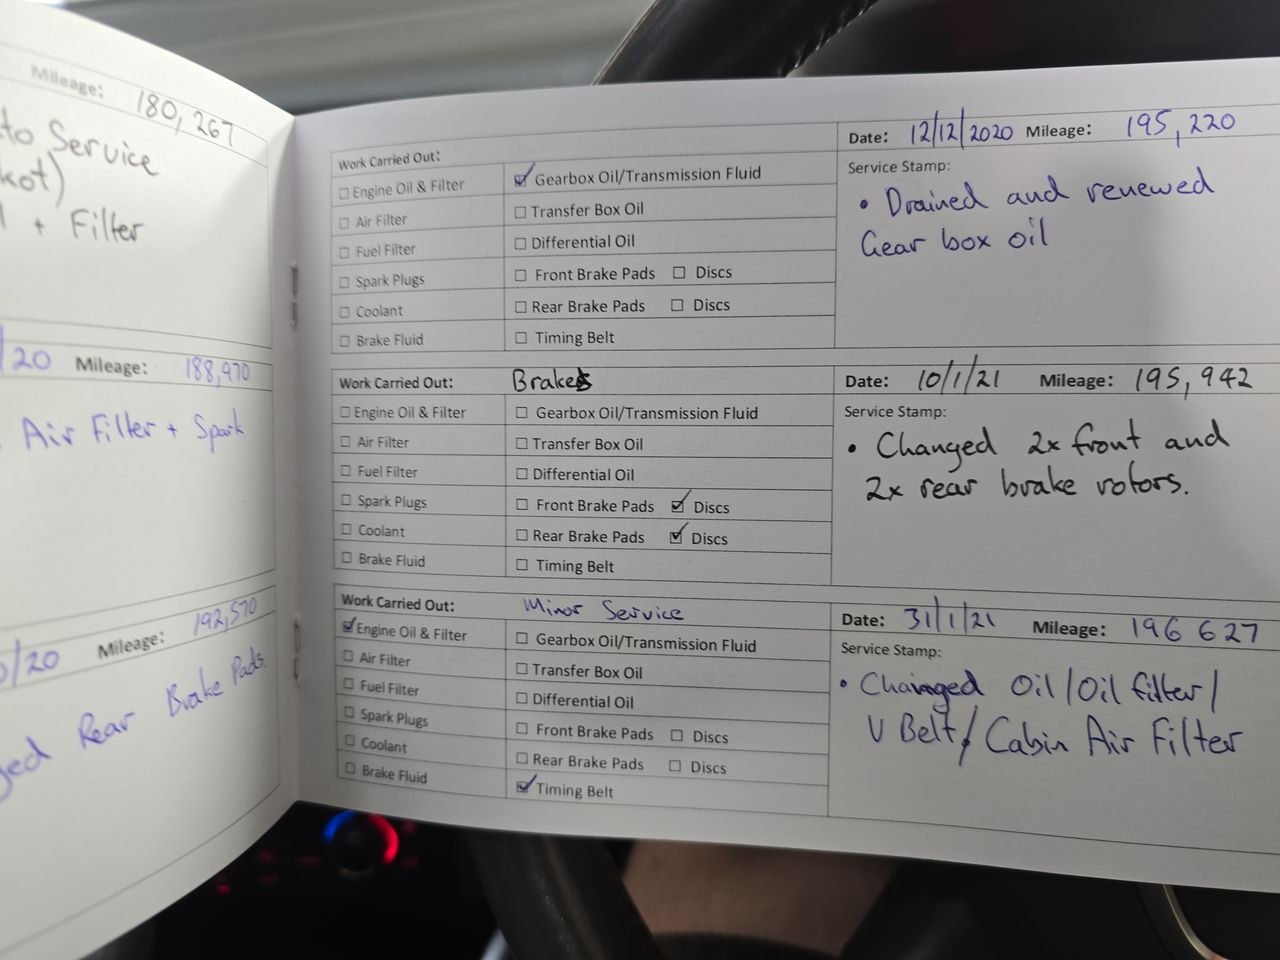 Mileage: 180,267
to Service
+ Filter
20 Mileage: 188,970
Air Filter + Spark
/20 Mileage: 192,570
Rear Brake Pads
Work Carried Out:
Date: 12/12/2020 Mileage: 195,220
☐ Engine Oil & Filter ☑ Gearbox Oil/Transmission Fluid
☐ Air Filter ☐ Transfer Box Oil
☐ Fuel Filter ☐ Differential Oil
☐ Spark Plugs ☐ Front Brake Pads ☐ Discs
☐ Coolant ☐ Rear Brake Pads ☐ Discs
☐ Brake Fluid ☐ Timing Belt
Service Stamp:
• Drained and renewed
Gear box oil
Work Carried Out: Brakes
Date: 10/1/21 Mileage: 195,942
☐ Engine Oil & Filter ☐ Gearbox Oil/Transmission Fluid
☐ Air Filter ☐ Transfer Box Oil
☐ Fuel Filter ☐ Differential Oil
☐ Spark Plugs ☐ Front Brake Pads ☑ Discs
☐ Coolant ☐ Rear Brake Pads ☑ Discs
☐ Brake Fluid ☐ Timing Belt
Service Stamp:
• Changed 2x front and
2x rear brake rotors.
Work Carried Out: Minor Service
Date: 31/1/21 Mileage: 196 627
☑ Engine Oil & Filter ☐ Gearbox Oil/Transmission Fluid
☐ Air Filter ☐ Transfer Box Oil
☐ Fuel Filter ☐ Differential Oil
☐ Spark Plugs ☐ Front Brake Pads ☐ Discs
☐ Coolant ☐ Rear Brake Pads ☐ Discs
☐ Brake Fluid ☑ Timing Belt
Service Stamp:
• Changed Oil/Oil filter/
V Belt/Cabin Air Filter